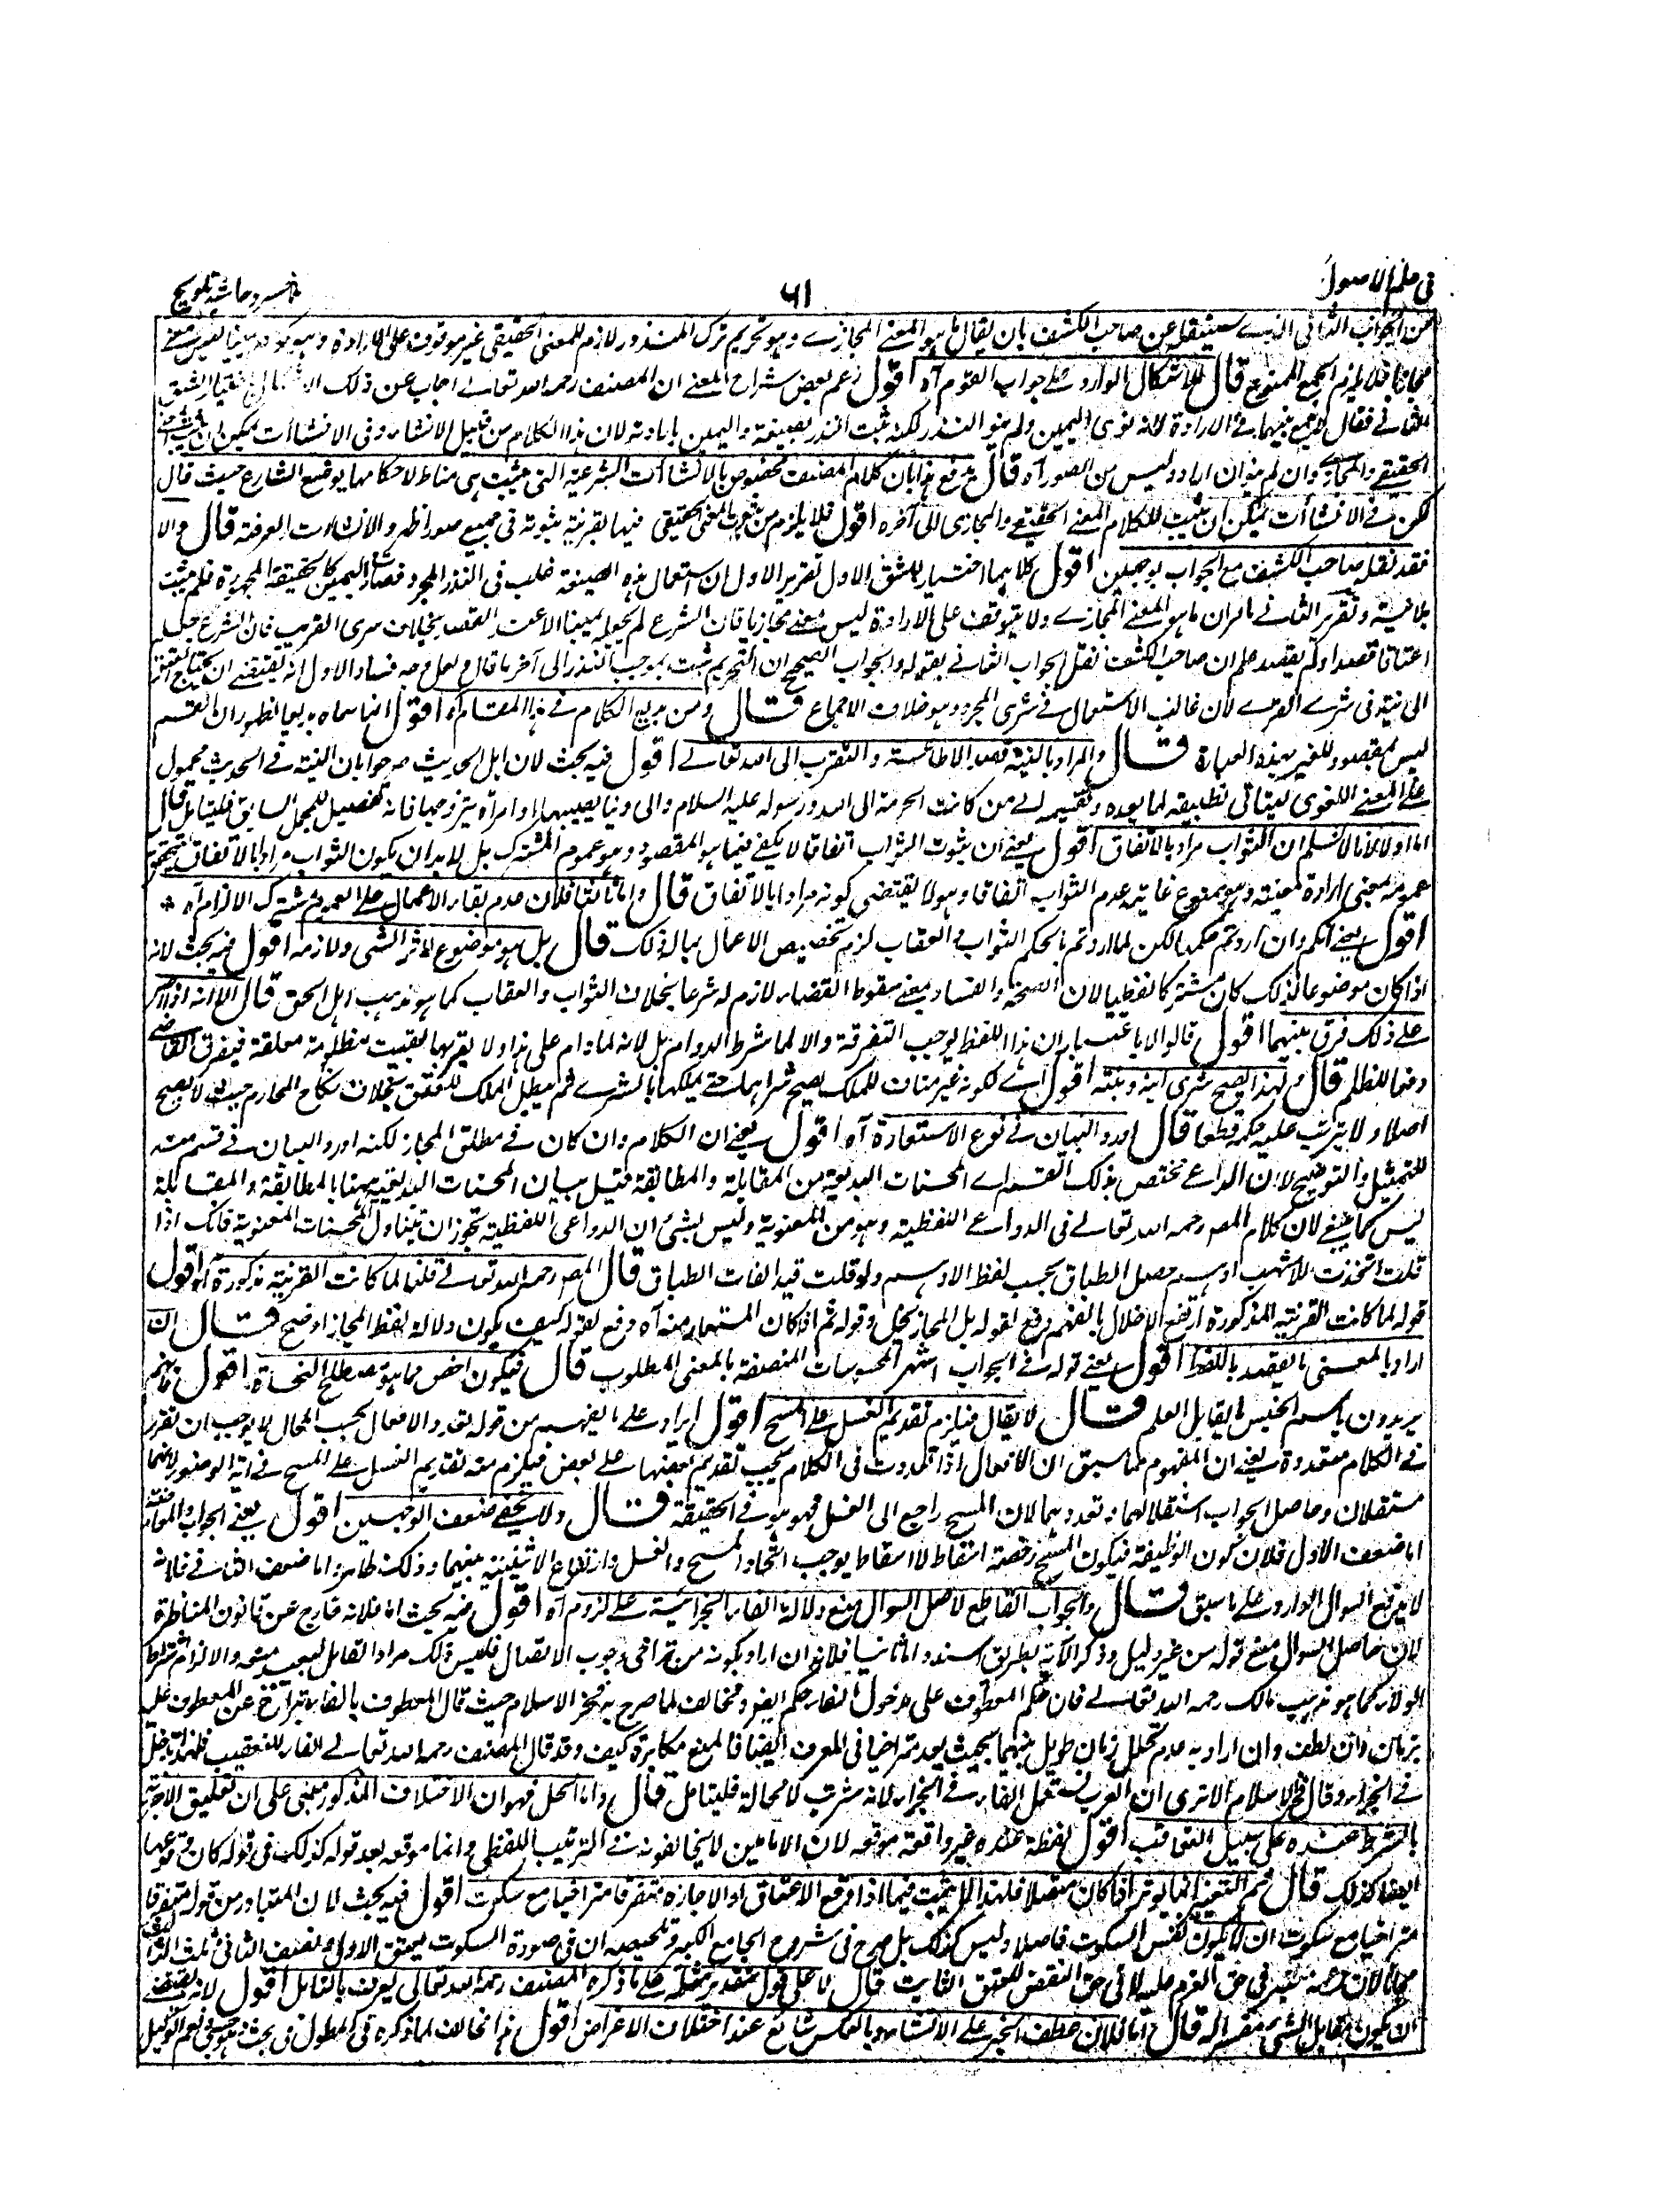 في علم الاصول
٥١
حاشية تلويح
عن الجواب الثاني الذي سينقله عن صاحب الكشف بان يقال ما هو المعنى المجازي وهو تحريم ترك المنذور لازم للمعنى الحقيقي غير موقوف على الارادة
مجازيا فلا يلزم الجمع الممنوع قال للاشكال الوارد على جواب القوم آه اقول زعم بعض شراح المغني ان المصنف رحمه الله تعالى اجاب عن ذلك
الثاني فقال لا جمع بينهما في الارادة لانه نوى اليمين ولم ينو النذر لكنه ثبت النذر بصيغته واليمين بارادته لان هذا الكلام من قبيل الانشاء وفي الانشاآت يمكن ان يثبت
الحقيقي والمجازي وان لم ينو ان اراد وليس من الصور آه قال يدفع هذا بان كلام المصنف مخصوص بالانشاآت الشرعية التي هي مناط لاحكامها بوضع الشارع حيث قال
لكن في الانشاآت يمكن ان يثبت للكلام المعنى الحقيقي والمجازي الى آخره اقول فلا يلزم من ثبوت المعنى الحقيقي فيها بقرينة ثبوته في جميع صور قال والا
فقد نقله صاحب الكشف مع الجواب بوجهين اقول كلاهما اختيار للشق الاول تقرير الاول ان استعمال هذه الصيغة غلب في النذر المجرد فصار اليمين كالحقيقة المهجورة فلم يثبت
بلا نية وتقرير الثاني ان ما هو المعنى المجازي ولا يتوقف على الارادة ليس معنى مجازيا فان الشرع لم يجعله يمينا الا عند القصد بخلاف شرى القريب فان الشرع جعله
اعتاقا قصد او لم يقصد علم ان صاحب الكشف نقل الجواب الثاني بقوله والجواب الصحيح ان التحريم ثبت بموجب النذر الى آخر ما قال ولعل وجه فساد الاول انه يقتضي ان يحتاج
الى نية في شرى القريب لان غالب الاستعمال في شرى المجرد وهو خلاف الاجماع قال ومن بديع الكلام في هذا المقام آه اقول انما سماه بديعا لظهور ان القسم
ليس بمقصود للغير بهذه العبارة قال والمراد بالنية قصد الاطاعة والتقرب الى الله تعالى اقول فيه بحث لان اهل الحديث صرحوا بان النية في الحديث محمول
على المعنى اللغوي ليتأتى تطبيقه لما بعده وتقسيمه الى من كانت الهجرة الى الله ورسوله عليه السلام والى دنيا يصيبها او امرأة يتزوجها فانه تفصيل للمجمل السابق فليتأمل قال
اما اولا فلانا لا نسلم ان الثواب مراد بالاتفاق اقول يعني ان ثبوت الثواب اتفاقا لا يكفي فيما هو المقصود وهو عموم المشترك بل لا بد ان يكون الثواب مرادا بالاتفاق
عمومه بمعنى ارادة معينة وهو ممنوع غايته عدم الثواب اتفاقا وهو لا يقتضي كونه مرادا بالاتفاق قال واما ثانيا فلان عدم بقاء الاعمال على العموم مشترك الالزام آه
اقول يعني انكم وان اردتم حكما لكن لما اردتم بالحكم الثواب والعقاب لزم تخصيص الاعمال بما لذلك قال بل هو موضوع لاثر الشيء ولازمه اقول فيه بحث لانه
اذا كان موضوعا لذلك كان مشتركا لفظيا لان الصحة والفساد بمعنى سقوط القضاء لازم له شرعا بخلاف الثواب والعقاب كما هو مذهب اهل الحق قال الا انه اذا
على ذلك فرق بينهما اقول قالوا لا باعتبار ان هذا اللفظ يوجب التفرقة والا لما شرط الدوام بل لانه لما دام على هذا ولا يقربها بقيت مظلومة معلقة فيفرق القاضي
دفعا للظلم قال ولهذا يصح شرى ابنه وبنته اقول اي لكونه غير مناف للملك يصح شراهما حتى يملكهما بالشرى ثم يبطل الملك للعتق بخلاف نكاح المحارم حيث لا يصح
اصلا ولا يترتب عليه حكمه قطعا قال اورد البيان في نوع الاستعارة آه اقول يعني ان الكلام وان كان في مطلق المجاز لكنه اورد البيان في قسم منه
للتمثيل والتوضيح لا ان الداعي مختص بذلك القسم اي المحسنات البديعية من المقابلة والمطابقة قيل بيان المحسنات البديعية ههنا بالمطابقة والمقابلة
ليس كما ينبغي لان كلام المص رحمه الله تعالى في الدواعي اللفظية وهو من المعنوية وليس بشيء ان الدواعي اللفظية يجوز ان يتناول المحسنات المعنوية فانك اذا
قلت اتخذت للاشهب ادهم حصل الطباق بحسب لفظ الادهم ولو قلت قيدا فات الطباق قال المص رحمه الله تعالى قلنا لما كانت القرينة مذكورة آه اقول
قوله لما كانت القرينة المذكورة ارتفع الاخلال بالفهم دفع لقوله بل المجاز مخل وقوله ثم اذا كان المستعار منه آه دفع لقوله كيف يكون دلالة لفظ المجاز اوضح قال ان
اراد بالمعنى ما يقصد باللفظ اقول يعني قوله في الجواب اشهر المحسوسات المتصفة بالمعنى المطلوب قال فيكون اخص مما هو مصطلح النحاة اقول فانهم
يريدون باسم الجنس ما يقابل العلم قال لا يقال فيلزم تقديم الغسل على المسح اقول ايراد على ما يفهم من قوله تعدد الافعال بحسب المحال لا يوجب ان تقرر
في الكلام متعددة يعني ان المفهوم مما سبق ان الافعال اذا تعددت في الكلام يجب تقديم بعضها على بعض فيلزم منه تقديم الغسل على المسح في آية الوضوء لانهما
مستقلان وحاصل الجواب استقلالهما وتعددهما لان المسح راجع الى الغسل فهو هو في الحقيقة قال ولا يخفى ضعف الوجهين اقول يعني الجواب والمعارضة
اما ضعف الاول فلان كون الوظيفة فيكون المسح رخصة اسقاط لا اسقاط يوجب اتحاد المسح والغسل وارتفاع الاثنينية بينهما وذلك ظاهر واما ضعف الثاني فلانه
لا يدفع السوال الوارد على ما سبق قال والجواب القاطع لاصل السوال منع دلالة الفاء الجزائية على لزوم آه اقول فيه بحث اما اولا فلانه خارج عن قانون المناظرة
لان حاصل السوال منع قوله من غير دليل وذكر الآية بطريق السند واما ثانيا فلانه ان اراد بكونه من تراخي وجوب الاتصال فليس ذلك مراد القائل
الولاء كما هو مذهب مالك رحمه الله تعالى فان حكم المعطوف على مدخول الفاء حكم الفور مخالف لما صرح به فخر الاسلام حيث قال المعطوف بالفاء يتراخى عن المعطوف عليه
بزمان وان لطف وان اراد به عدم تخلل زمان طويل بينهما بحيث يعد متراخيا في العرف ايضا فالمنع مكابرة كيف وقد قال المصنف رحمه الله تعالى الفاء للتعقيب فلهذا تدخل
في الجزاء وقال فخر الاسلام الا ترى ان العرب تستعمل الفاء في الجزاء لانه مترتب لا محالة فليتأمل قال واما الحل فهو ان الاختلاف المذكور مبني على ان تعليق الاجزية
بالشرط عنده على سبيل التعاقب اقول لفظة عنده غير واقعة موقعه لان الامامين لا يخالفونه في الترتيب اللفظي وانما موقعه بعد قوله كذلك في قوله كان وقوعها
ايضا كذلك قال ثم التغيير انما يؤثر اذا كان متصلا فلهذا لا يثبت فيما اذا وقع الاعتاق او الاجازة متفرقا متراخيا مع سكوت اقول فيه بحث لان المتبادر من قوله متفرقا
متراخيا مع سكوت ان لا يكون نفس السكوت فاصلا وليس كذلك بل صرح في شروح الجامع الكبير وتلخيصه ان في صورة السكوت يعتق الاول ونصف الثاني وثلث الثالث
مجانا لان زعمه معتبر في حق الغرم عليه لا في حق النقض للعتق الثابت قال لا على قول مقدر مثله على ما ذكره المصنف رحمه الله تعالى يعرف بالتأمل اقول لانه يقتضي
ان يكون مقابل الشيء مفسرا له قال اما ثالثا فلان عطف الخبر على الانشاء وبالعكس شائع عند اختلاف الاغراض اقول هذا مخالف لما ذكره في المطول في بحث هو حسبي ونعم الوكيل